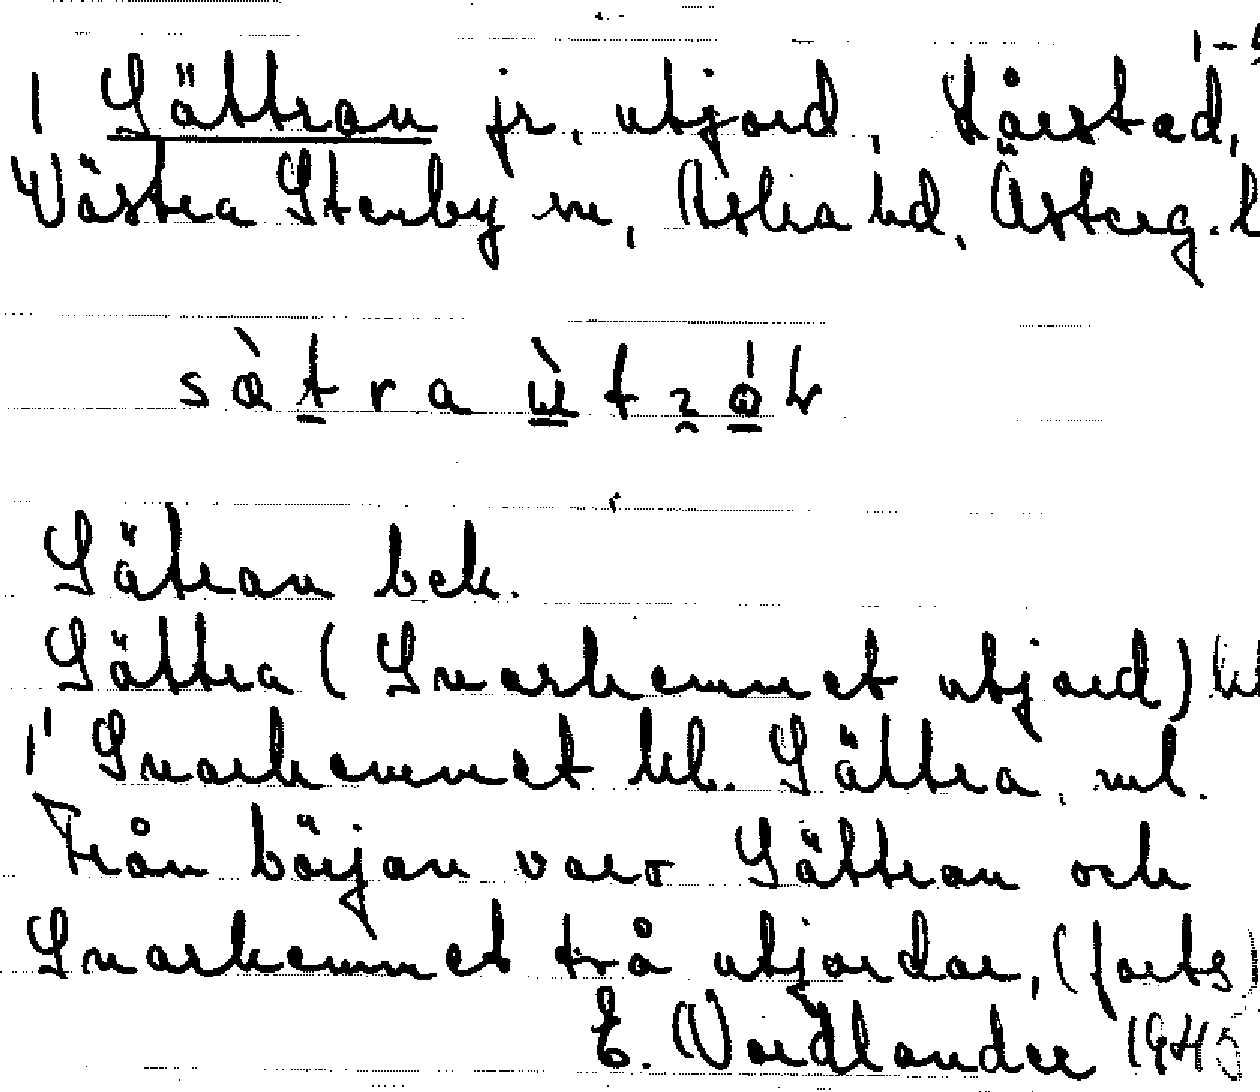 1-
1 Sättran jr, utjord, Kårstad,
Västra Stenby sn, Aska hd, Österg. l
sätra ùt
Sätran bek.
Sättra (Snarhemmet utjord)
1 Snarhemmet kl. Sättra, ml.
Från början voro Sättran och
Snarhemmet två utjordar, (forts)
E. Vordlander 1945